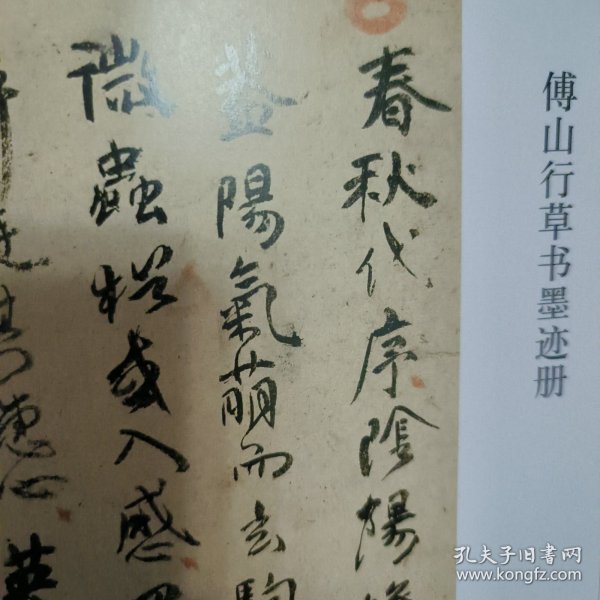 傅山行草书墨迹册
春秋代序陰陽
葢陽氣萌而玄駒
微蟲猶或入感
挺其惠心英
孔夫子旧书网
www.kongfz.com